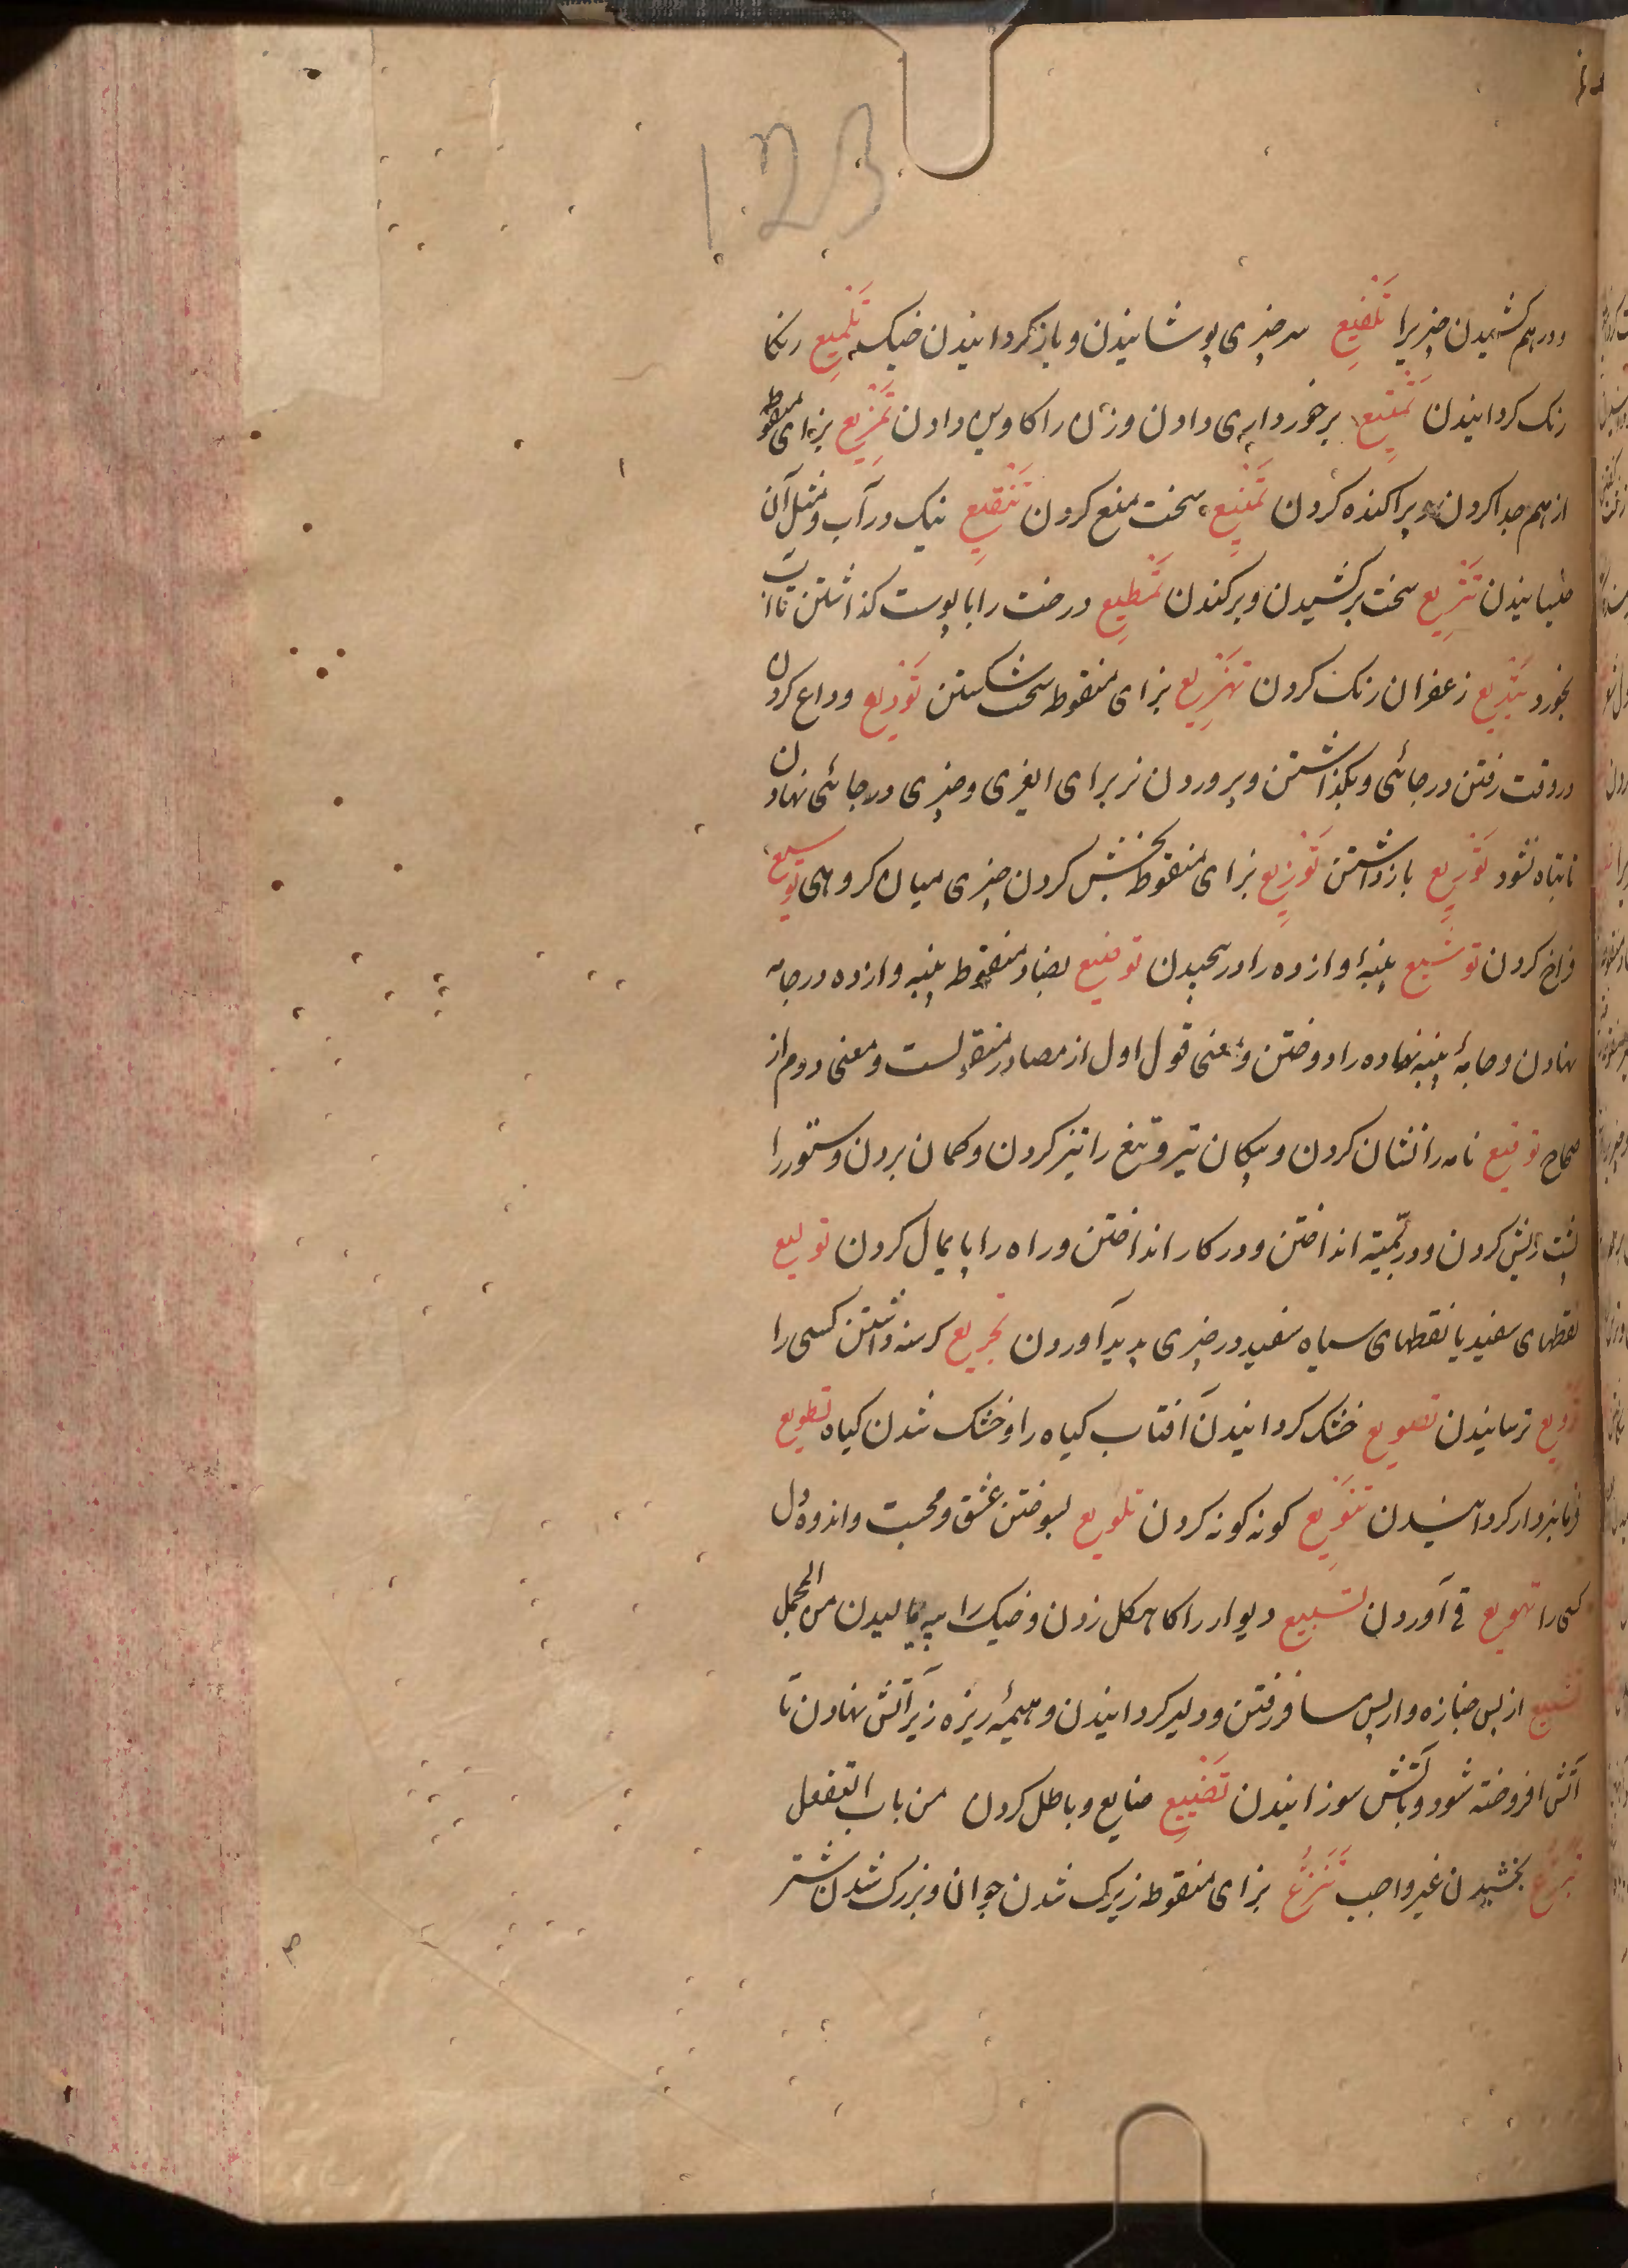 123
و درهم کشیدن چیزیرا تَلْفیعِ سر چیزی پوشانیدن و بازکردانیدن خیک تَلْمیعِ رنکا
رنک کردانیدن تَمْتیعِ برخورداری دادن و زن را کاوین دادن تَمْزیعِ بزای منقوط
از هم جدا کردن و پراکنده کردن تَمْنیعِ سخت منع کردن تَنْقیعِ نیک در آب و مثل آن
خیسانیدن تَنْزیع سخت برکشیدن و برکندن تَمْظیعِ درخت را با پوست کذاشتن تا آب
بخورد تَیْدیع زعفران رنک کردن تَهْزیع بزای منقوط سخت شکستن تَوْدیع وداع کردن
در وقت رفتن در جائی و بکذاشتن و پرورون نر برای ایغری و چیزی در جائی نهادن
تا تباه نشود تَوْریعِ بازداشتن تَوْزیعِ بزای منقوط بخش کردن چیزی میان کروهی توسیع
فراخ کردن توشیع پنبه وازده را در پیچیدن توضیع بضاد منقوط پنبه وازده در جامه
نهادن و جامهٔ پنبه نهاده را دوختن و معنی قول اول از مصادر منقولست و معنی دوم از
صحاح توقیع نامه را نشان کردن و پیکان تیر و تیغ را تیز کردن و کمان بردن و ستور را
پشت ریش کردن و در انداختن و در کار انداختن و راه را پایمال کردن تولیع
نقطهای سفید یا نقطهای سیاه سفید در چیزی پدید آوردن تجویع کرسنه داشتن کسی را
ترویع ترسانیدن تصویع خشک کردانیدن آفتاب کیاه را و خشک شدن کیاه تطویع
فرمانبردار کردانیدن تنویعِ کونه کونه کردن تلویع بسوختن عشق و محبت و اندوه دل
کسی را تهویع قی آوردن تسییع دیوار را کاهکل زدن و خیک را پیه مالیدن من المجمل
تشییع از پس جنازه و از پس مسافر رفتن و دلیر کردانیدن و هیمهٔ ریزه زیر آتش نهادن تا
آتش افروخته شود و بآتش سوزانیدن تَضْییعِ ضایع و باطل کردن من باب التفعل
تَبَرُّع بخشیدن غیر واجب تَبَزُّع بزای منقوط زیرک شدن جوان و بزرک شدن شتر